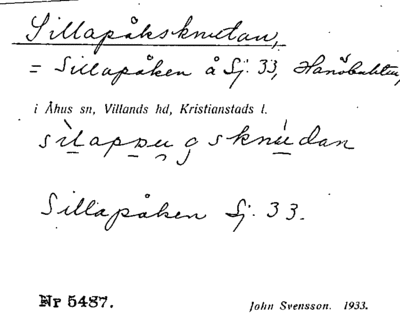 Sillapåksknudan,
= Sillapåken å Sj. 33, Hanöbukten,
i Åhus sn, Villands hd, Kristianstads l.
Sillapåken Sj. 33.
Nr 5487.
John Svensson. 1933.